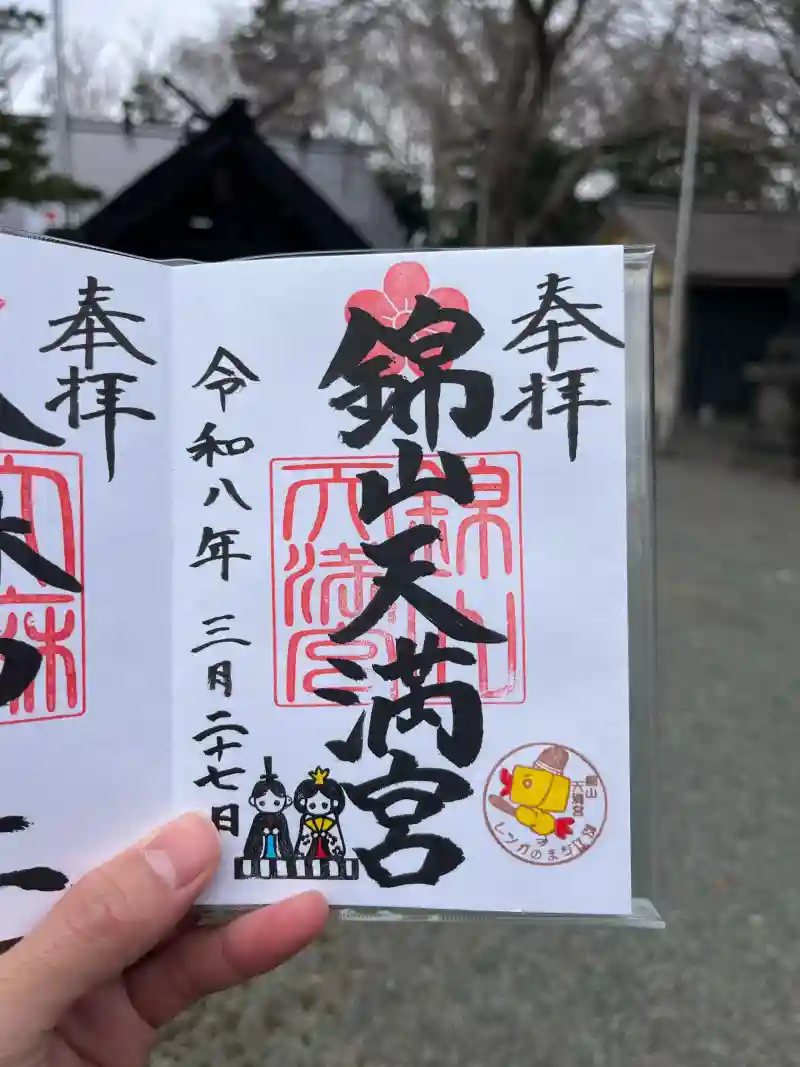 奉拝
錦山天満宮
令和八年 三月二十七日
錦山
天満宮
錦山
天満宮
レンガのまち江別
奉拝